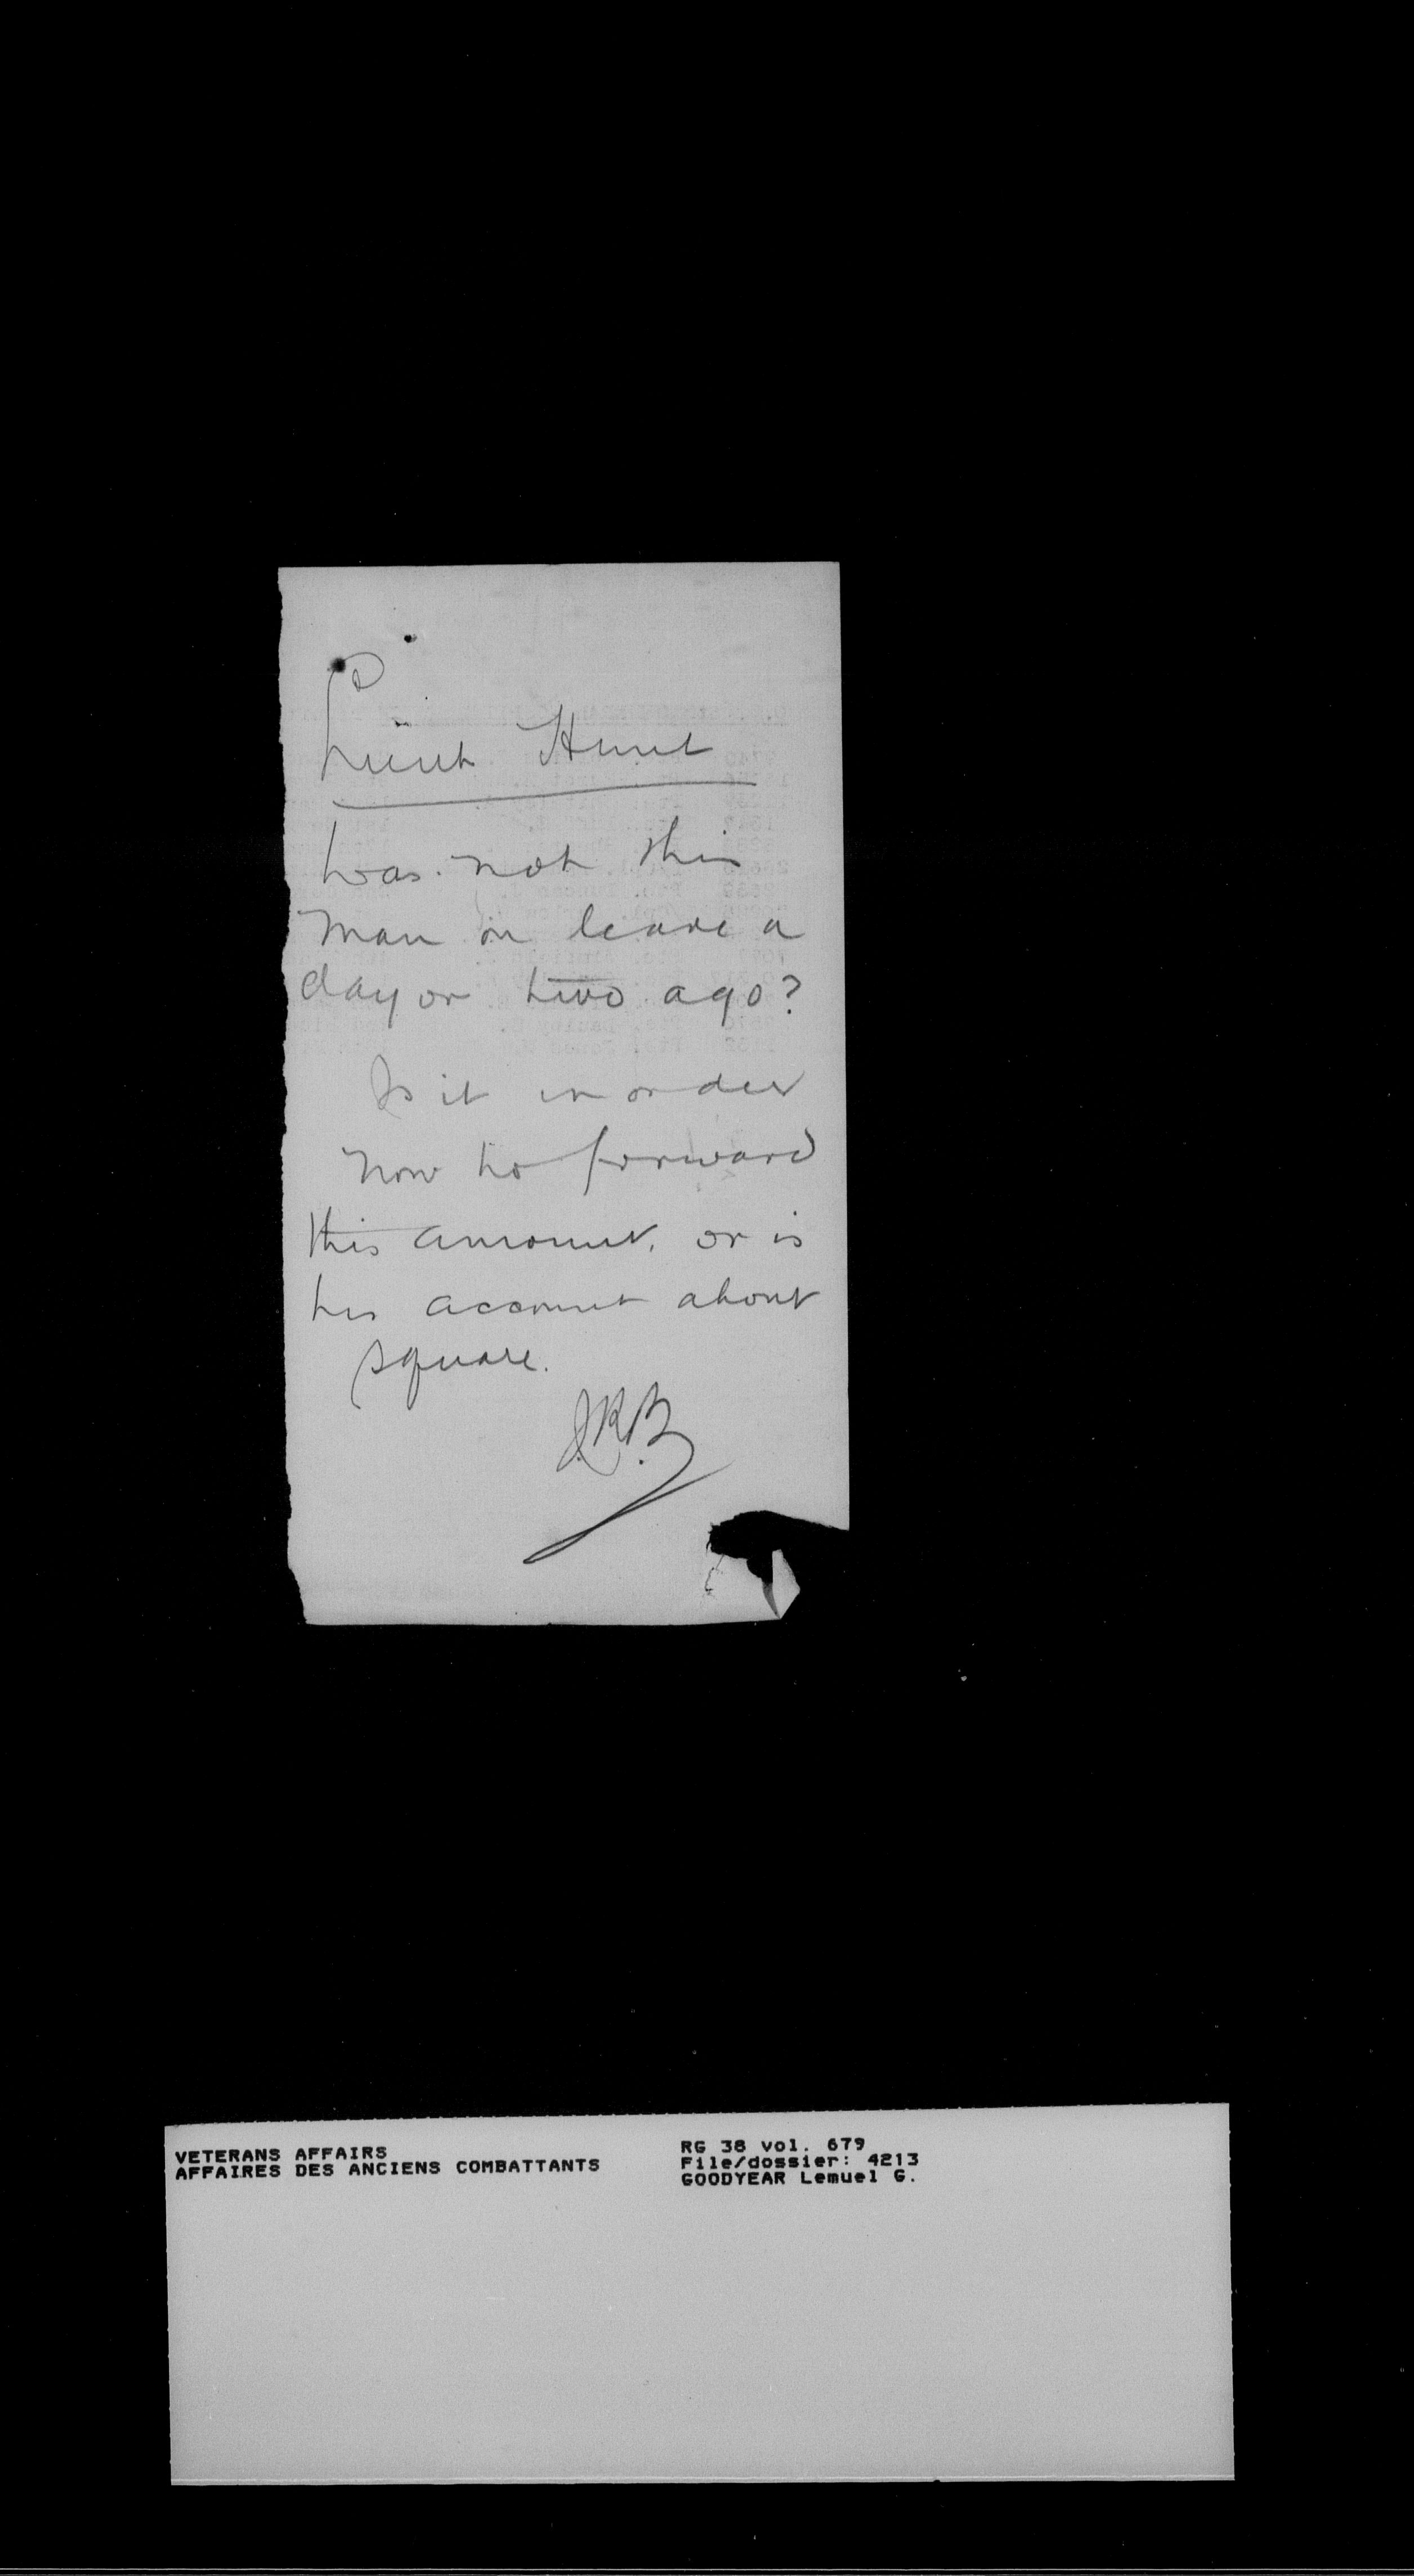 Lieut Hunt
Was not this
man on leave a
day or two ago?
Is it in order
now to forward
this amount, or is
his account about
square.
J.R.B
VETERANS AFFAIRS
AFFAIRES DES ANCIENS COMBATTANTS
RG 38 vol. 679
File/dossier: 4213
GOODYEAR Lemuel G.